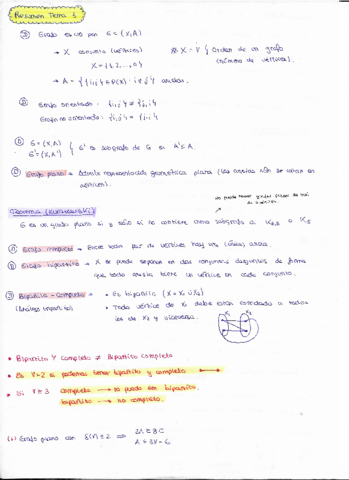 Resumen Tema 1
Grafo es un par G = (X,A)
→ X conjunto (vértices)
X = {1,2,...,n}
Orden de un grafo
(número de vértices).
aristas.
Grafo orientado: {i,j} ≠ {j,i}
Grafo no orientado: {i,j} = {j,i}
G = (X,A)
G' = (X,A') } G' es subgrafo de G si A' ⊆ A.
Grafo plano → Admite representación geométrica plana (las aristas no se cortan en
vértices).
Teorema (Kuratowski)
G es un grafo plano si y sólo si no contiene como subgrafo a K3,3 o K5
Grafo completo → Entre cada par de vértices hay una (única) arista.
Grafo bipartito → X se puede separar en dos conjuntos disjuntos de forma
que toda arista tiene un vértice en cada conjunto.
Bipartito - Completo → • Es bipartito (X = X1 ∪ X2)
• Todo vértice de X1 debe estar conectado a todos
los de X2 y viceversa.
X1 X2
• Bipartito y completo ≠ Bipartito completo
• Si V=2 si podemos tener bipartito y completo
• Si V ≥ 3 completo → no puede ser bipartito.
bipartito → no completo.
Grafo plano con